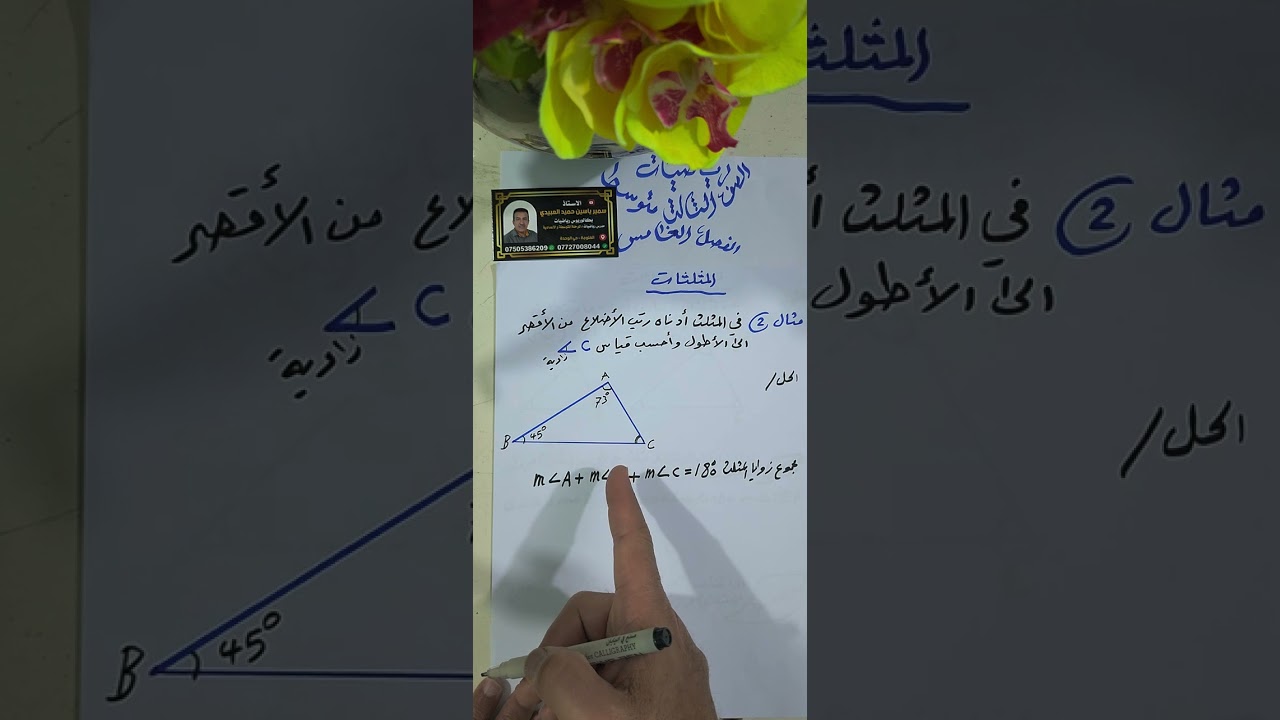 رياضيات
الصف الثالث متوسط
الفصل الخامس
الاستاذ
سمير ياسين حميد العبيدي
بكالوريوس رياضيات
07505386209
07727008044
المثلثات
مثال 2 في المثلث أدناه رتب الأضلاع من الأقصر
الى الأطول وأحسب قياس ∠C
زاوية
الحل/
A
73°
B
45°
C
مجموع زوايا المثلث
m∠A + m∠ + m∠C = 180°
CALLIGRAPHY
المثلثات
مثال 2 في المثلث أ
لاع من الأقصر
الى الأطول
∠C
زاوية
الحل/
B
45°